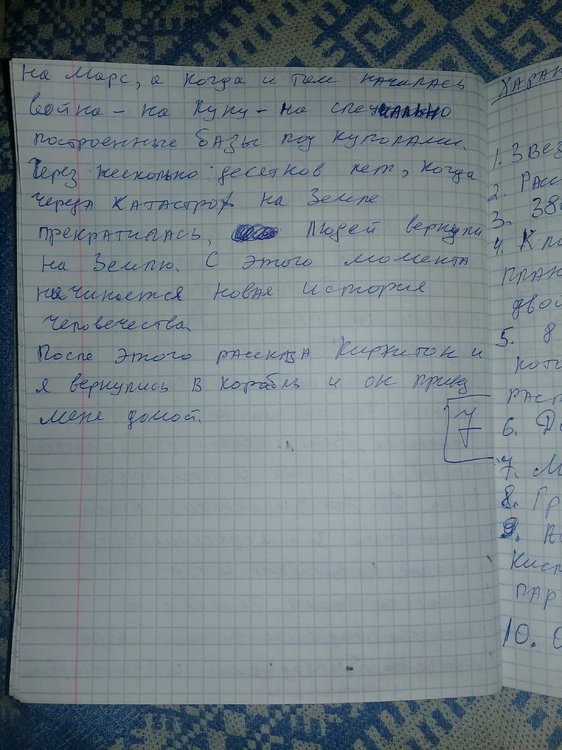 на Марс, а когда и там началась
война – на Луну – на специально
построенные базы под куполами.
Через несколько десетков лет, когда
череда катастроф на Земле
прекратилась, людей вернули
на Землю. С этого момента
начинается новая история
человечества.
После этого рассказа и
я вернулись в корабль и он
мене домой.
7
1. Звез
2. Расс
3. Зве
4.
двой
5. 8
кото
раст
6.
7. М
8. Пр
9.
Кисл
пар
10. О